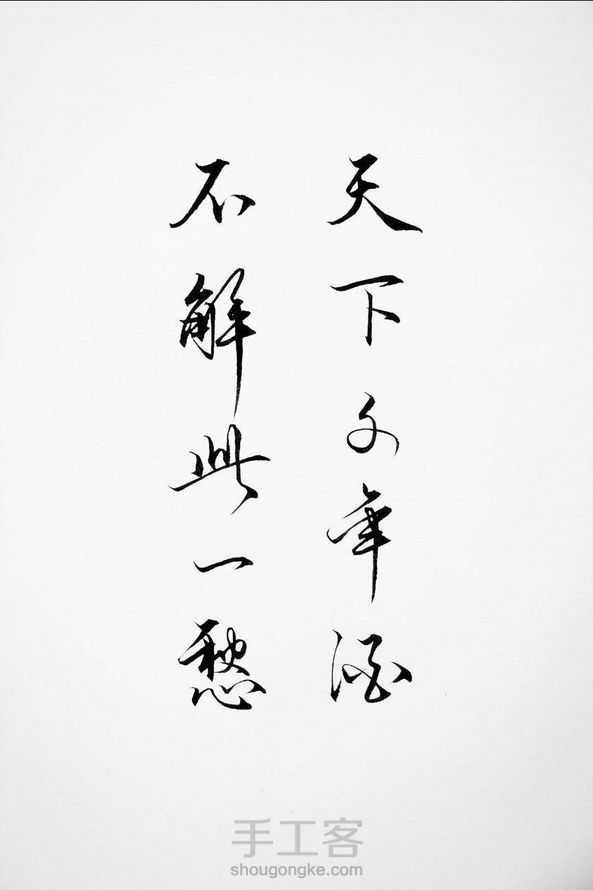 天下多年酒
不解此一愁
手工客
shougongke.com